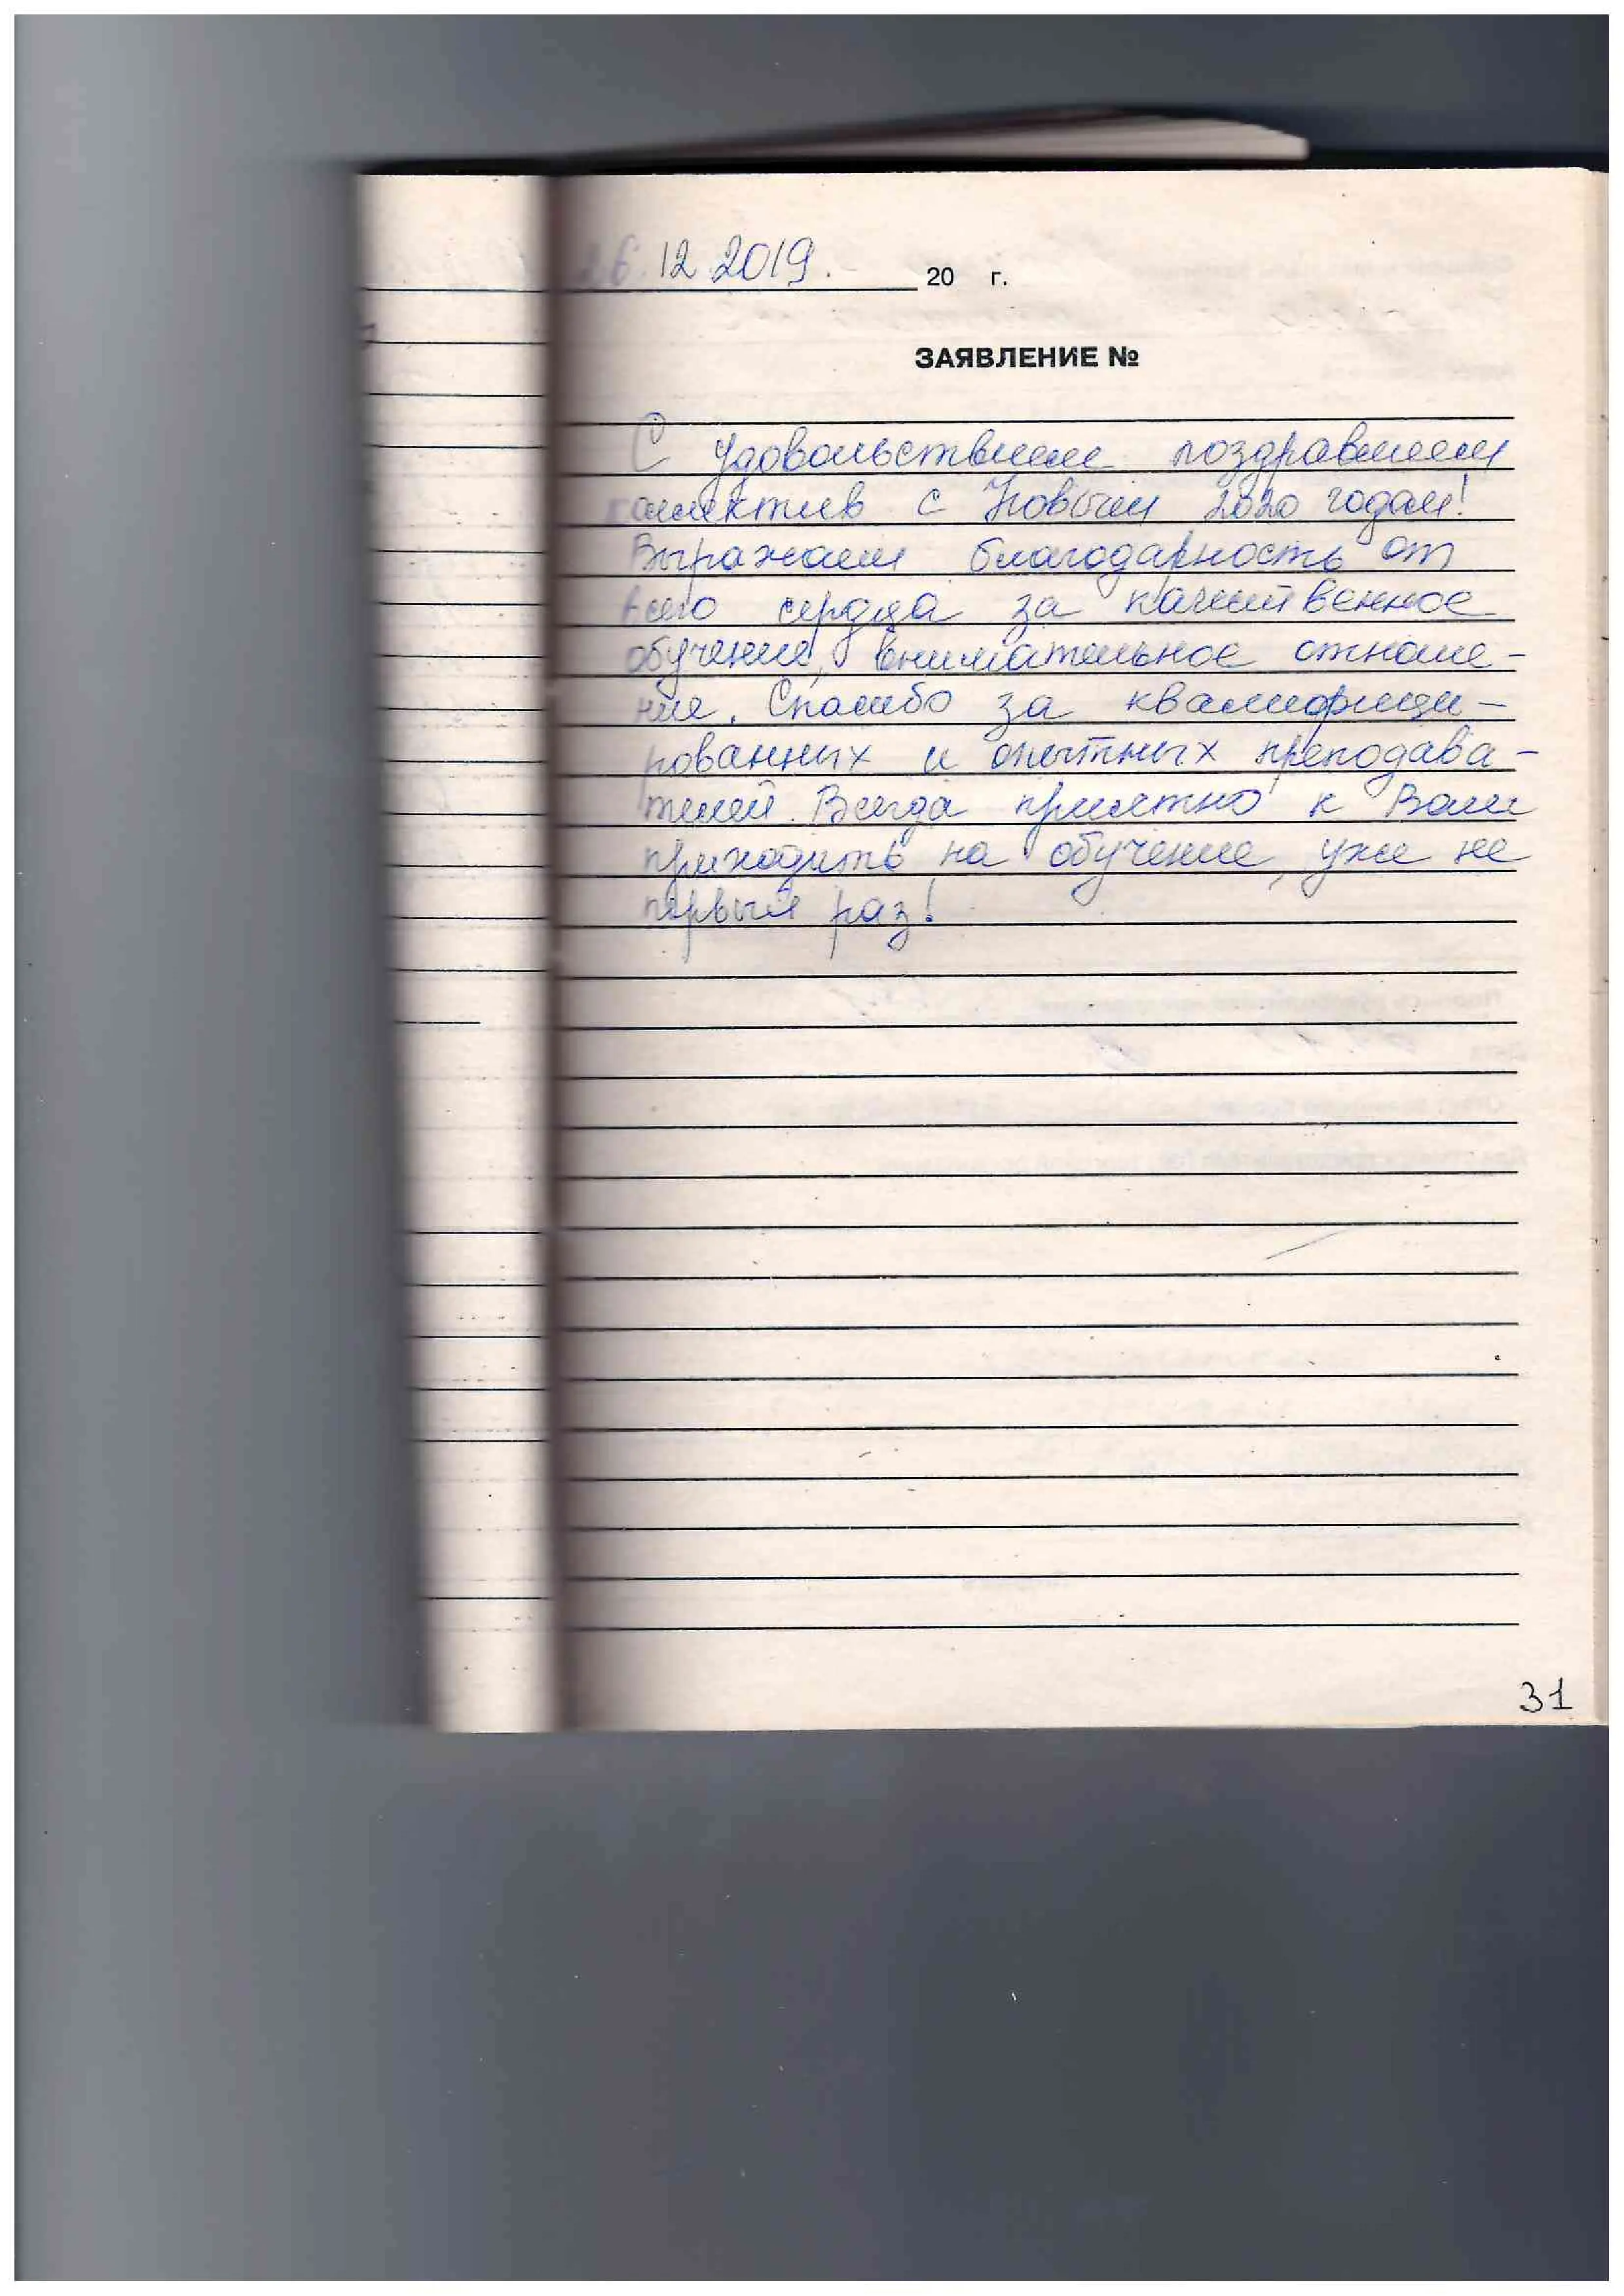 26.12.2019. 20 г.
ЗАЯВЛЕНИЕ №
С удовольствием поздравляем
коллектив с Новым 2020 годом!
Выражаем благодарность от
всего сердца за качественное
обучение, внимательное отноше-
ние. Спасибо за квалифици-
рованных и опытных преподава-
телей. Всегда приятно к Вам
приходить на обучение, уже не
первый раз!
31